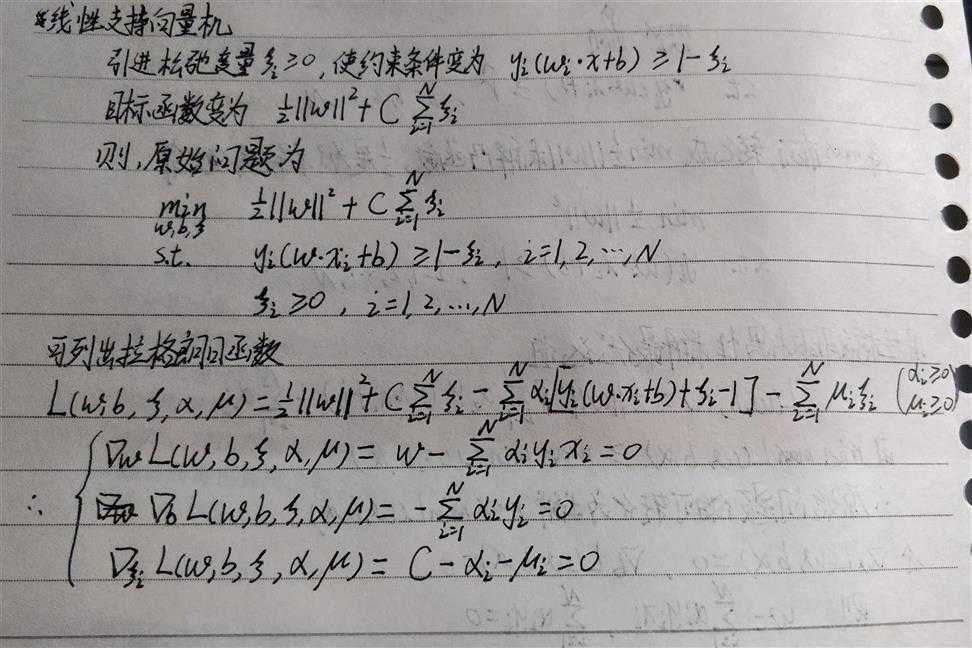 线性支持向量机
引进松弛变量 ξᵢ≥0, 使约束条件变为 yᵢ(wᵢ·x+b) ≥ 1-ξᵢ
目标函数变为 ½||w||² + C ∑ᵢ₌₁ᴺ ξᵢ
则, 原始问题为
min_{w,b,ξ} ½||w||² + C ∑ᵢ₌₁ᴺ ξᵢ
s.t. yᵢ(w·xᵢ+b) ≥ 1-ξᵢ, i=1,2,…,N
ξᵢ ≥ 0, i=1,2,…,N
可列出拉格朗日函数
L(w,b,ξ,α,μ) = ½||w||² + C ∑ᵢ₌₁ᴺ ξᵢ - ∑ᵢ₌₁ᴺ αᵢ[yᵢ(w·xᵢ+b)+ξᵢ-1] - ∑ᵢ₌₁ᴺ μᵢξᵢ (αᵢ≥0 μᵢ≥0)
∇w L(w,b,ξ,α,μ) = w - ∑ᵢ₌₁ᴺ αᵢyᵢxᵢ = 0
∴ ∇b L(w,b,ξ,α,μ) = -∑ᵢ₌₁ᴺ αᵢyᵢ = 0
∇ξᵢ L(w,b,ξ,α,μ) = C - αᵢ - μᵢ = 0